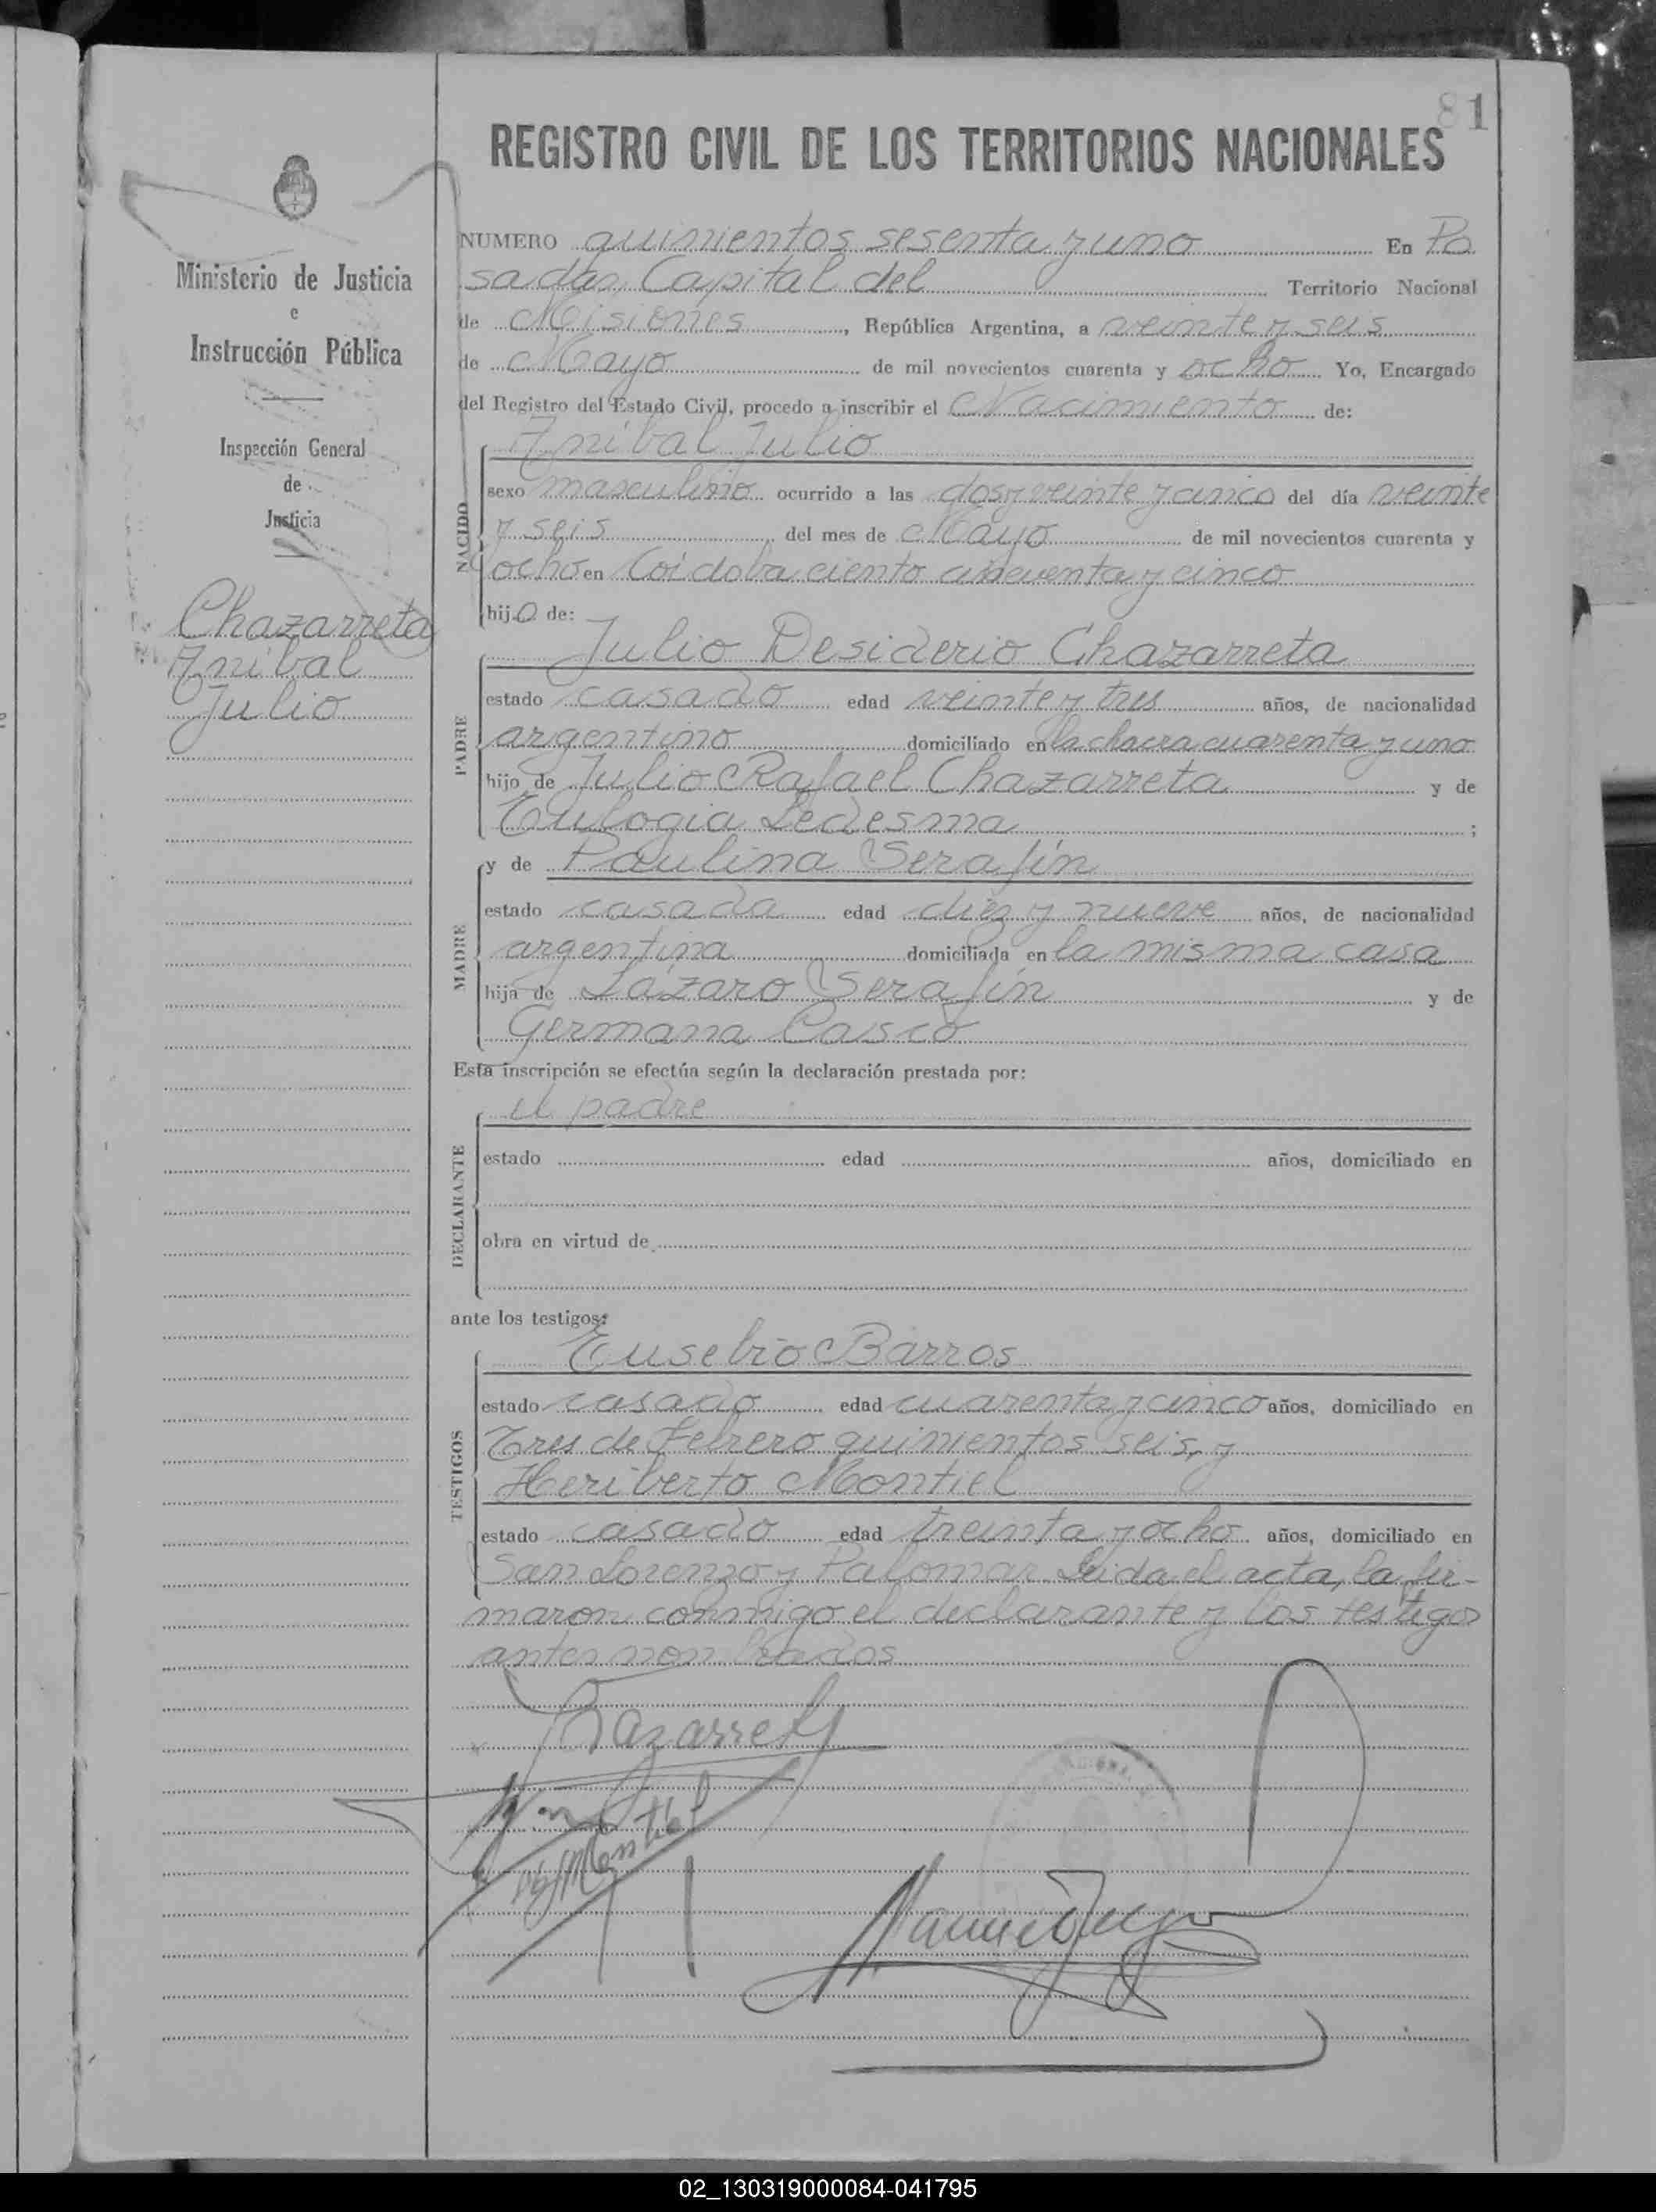 81
REGISTRO CIVIL DE LOS TERRITORIOS NACIONALES
Ministerio de Justicia
e
Instrucción Pública
Inspección General
de
Justicia
Chazarreta
Anibal
Julio
NUMERO quinientos sesenta y uno En Po
sadas, Capital del Territorio Nacional
de Misiones, República Argentina, a veinte y seis
de Mayo de mil novecientos cuarenta y ocho Yo, Encargado
del Registro del Estado Civil, procedo a inscribir el Nacimiento de:
NACIDO
Anibal Julio
sexo masculino ocurrido a las dos y veinte y cinco del día veinte
y seis del mes de Mayo de mil novecientos cuarenta y
ocho en Córdoba ciento cincuenta y cinco
hijo de:
PADRE
Julio Desiderio Chazarreta
estado casado edad veinte y tres años, de nacionalidad
argentino domiciliado en la chacra cuarenta y uno
hijo de Julio Rafael Chazarreta y de
Eulogia Ledesma ;
MADRE
y de Paulina Serafín
estado casada edad diez y nueve años, de nacionalidad
argentina domiciliada en la misma casa
hija de Lázaro Serafín y de
Germana Casco
Esta inscripción se efectúa según la declaración prestada por:
DECLARANTE
el padre
estado edad años, domiciliado en
obra en virtud de
ante los testigos:
TESTIGOS
Eusebio Barros
estado casado edad cuarenta y cinco años, domiciliado en
Tres de Febrero quinientos seis, y
Heriberto Montiel
estado casado edad treinta y ocho años, domiciliado en
San Lorenzo y Palomar. Leida el acta, la fir-
maron conmigo el declarante y los testigos
antes nombrados
Chazarreta
Montiel
02_130319000084-041795